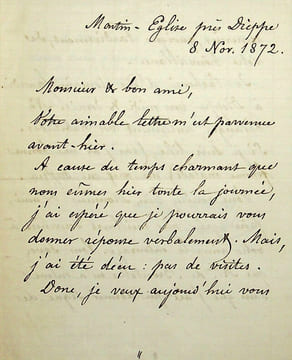 Martin-Eglise près Dieppe
8 Nov. 1872.
Monsieur & bon ami,
Votre aimable lettre m'est parvenue
avant-hier.
A cause du temps charmant que
nous eûmes hier toute la journée,
j'ai espéré que je pourrais vous
donner réponse verbalement. Mais,
j'ai été déçu : pas de visites.
Donc, je veux aujourd'hui vous